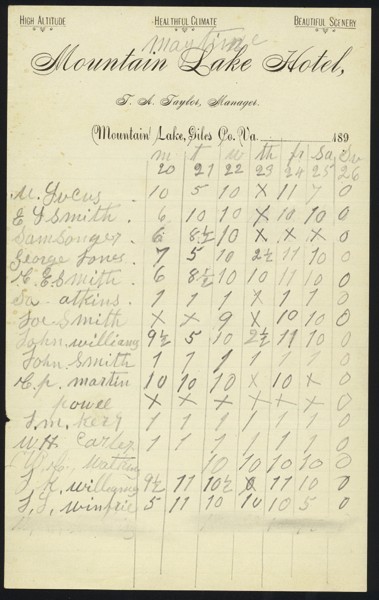 HIGH ALTITUDE HEALTHFUL CLIMATE BEAUTIFUL SCENERY
maytime
Mountain Lake Hotel,
T. A. Taylor, Manager.
Mountain Lake, Giles Co. Va. 189
m t w th fr Sa Su
20 21 22 23 24 25 26
M. Lucus 10 5 10 x 11 7 0
E D Smith 6 10 10 x 10 10 0
Sam Songer 6 8½ 10 x x x 0
George Jones 7 5 10 2½ 11 10 0
H. E. Smith 6 8½ 10 10 11 10 0
Sa atkins 1 1 1 x 1 1 0
Joe Smith x x 9 x 10 10 0
John williams 9½ 5 10 2½ 11 10 0
John Smith 1 1 1 1 1 1 0
H. p. martin 10 10 10 x 10 x 0
powel x x x x x x x
J. m. Kery 1 1 1 1 1 1 0
W H Carter 1 1 1 1 1 1 0
10 10 10 10 0
J. K. williams 9½ 11 10½ 8 11 10 0
J. J. winfrie 5 11 10 10 10 5 0